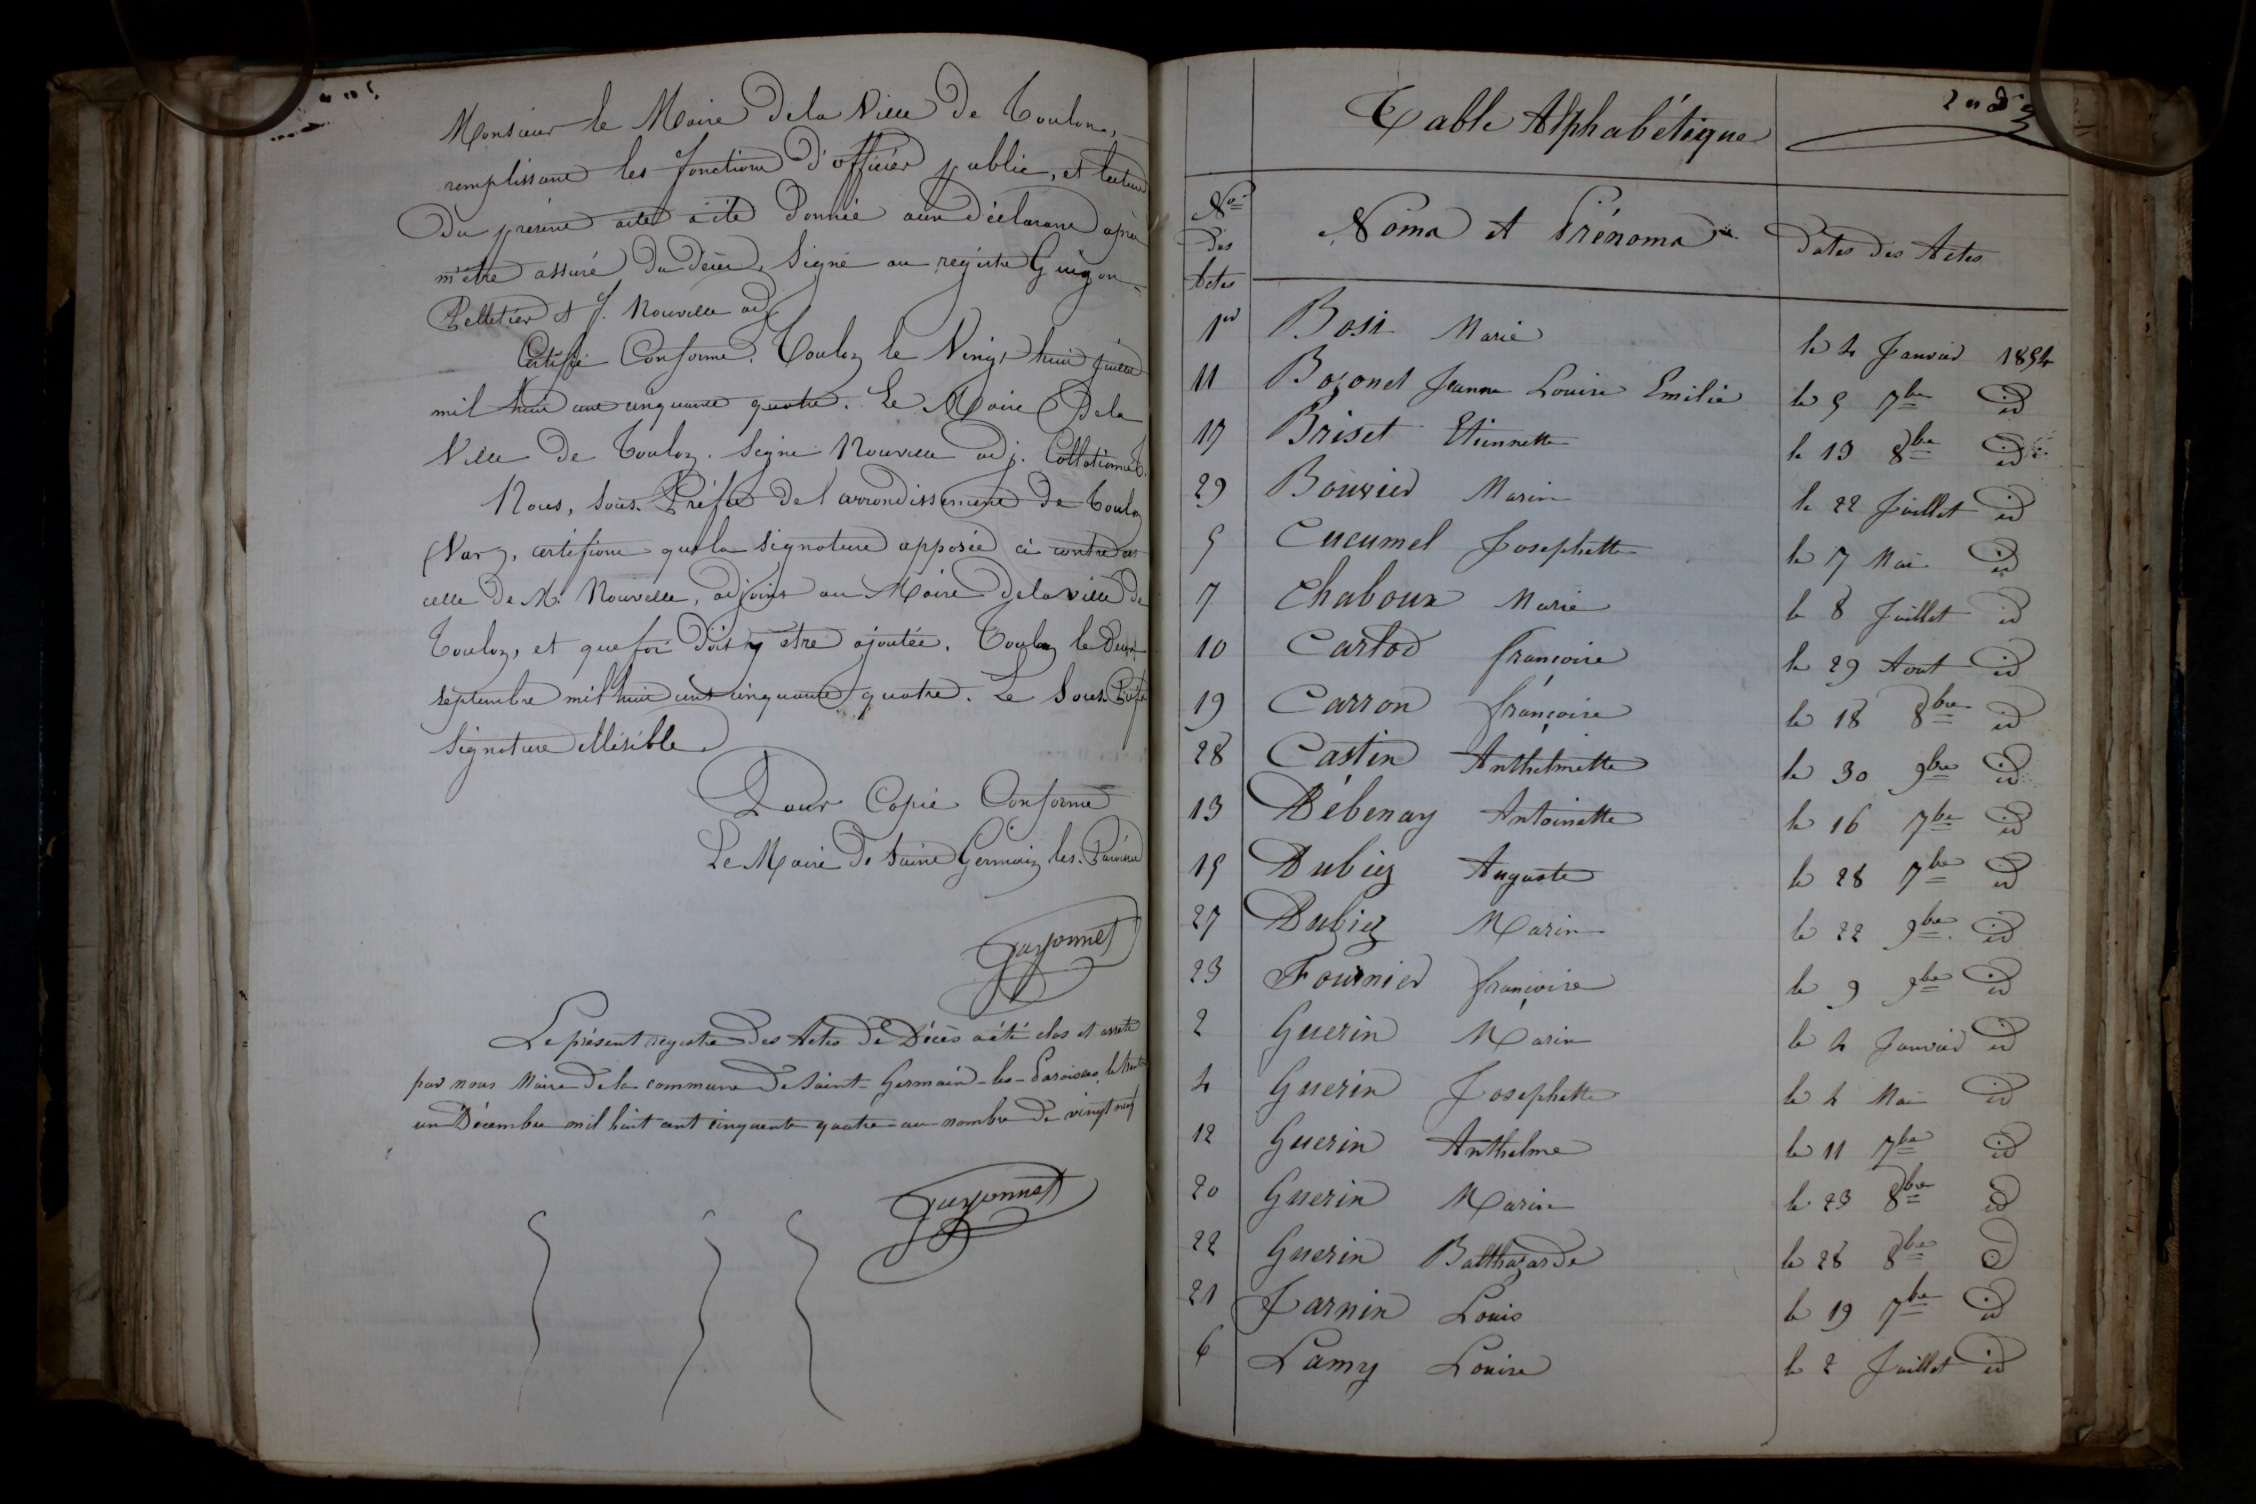 Monsieur le Maire de la Ville de Toulon,
remplissant les fonctions d'officier public, et lecture
du présent acte a été donnée aux déclarans après
m'être assuré du décès. Signé au registre Guigon
Pelletier et J. Nouvelle adj.
Certifié Conforme. Toulon le Vingt huit juillet
mil huit cent cinquante quatre. Le Maire de la
Ville de Toulon. Signé Nouvelle adj. Collationné.
Nous, Sous-Préfet de l'arrondissement de Toulon
(Var), certifions que la signature apposée ci contre est
celle de M. Nouvelle, adjoint au Maire de la ville de
Toulon, et que foi doit y être ajoutée. Toulon le Deux
septembre mil huit cent cinquante quatre. Le Sous-Préfet
Signature illisible
Pour Copie Conforme
Le Maire de Saint Germain les Paroisses
Guyonnet
Le présent registre des Actes de Décès a été clos et arrêté
par nous Maire de la commune de Saint-Germain-les-Paroisses, le trente
un Décembre mil huit cent cinquante quatre au nombre de vingt neuf
Guyonnet
Table Alphabétique
Nos des Actes Noms et Prénoms Dates des Actes
1er Bosi Marie le 4 Janvier 1854
11 Bozonet Jeanne Louise Emilie le 5 7bre id
17 Briset Etiennette le 13 8bre id
29 Bouvier Marin le 22 Juillet id
5 Cucumel Josephette le 7 Mai id
7 Chaboux Marie le 8 Juillet id
10 Carlod françoise le 29 Aout id
19 Carron françoise le 18 8bre id
28 Castin Anthelmette le 30 9bre id
13 Débenay Antoinette le 16 7bre id
15 Dubiez Auguste le 28 7bre id
27 Dubiez Marin le 22 9bre id
23 Fournier françoise le 9 9bre id
2 Guerin Marin le 4 Janvier id
4 Guerin Josephette le 4 Mai id
12 Guerin Anthelme le 11 7bre id
20 Guerin Marin le 23 8bre id
22 Guerin Balthazarde le 28 8bre id
21 Jarnin Louis le 19 7bre id
6 Lamy Louise le 2 Juillet id